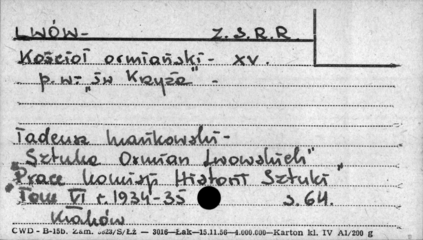 LWÓW- Z.S.R.R.
Kościoł ormiański- XV.
p.w. „św Krzyża" -
Tadeusz Mańkowski-
„Sztuka Ormian Lwowskich"
„Prace Komisji Historii Sztuki"
Tom VI r. 1934-35 s. 64.
Kraków
CWD - B-15b. Zam. 5623/S/Łż — 3016—Łak—15.11.56—4.000.000—Karton kl. IV A1/200 g